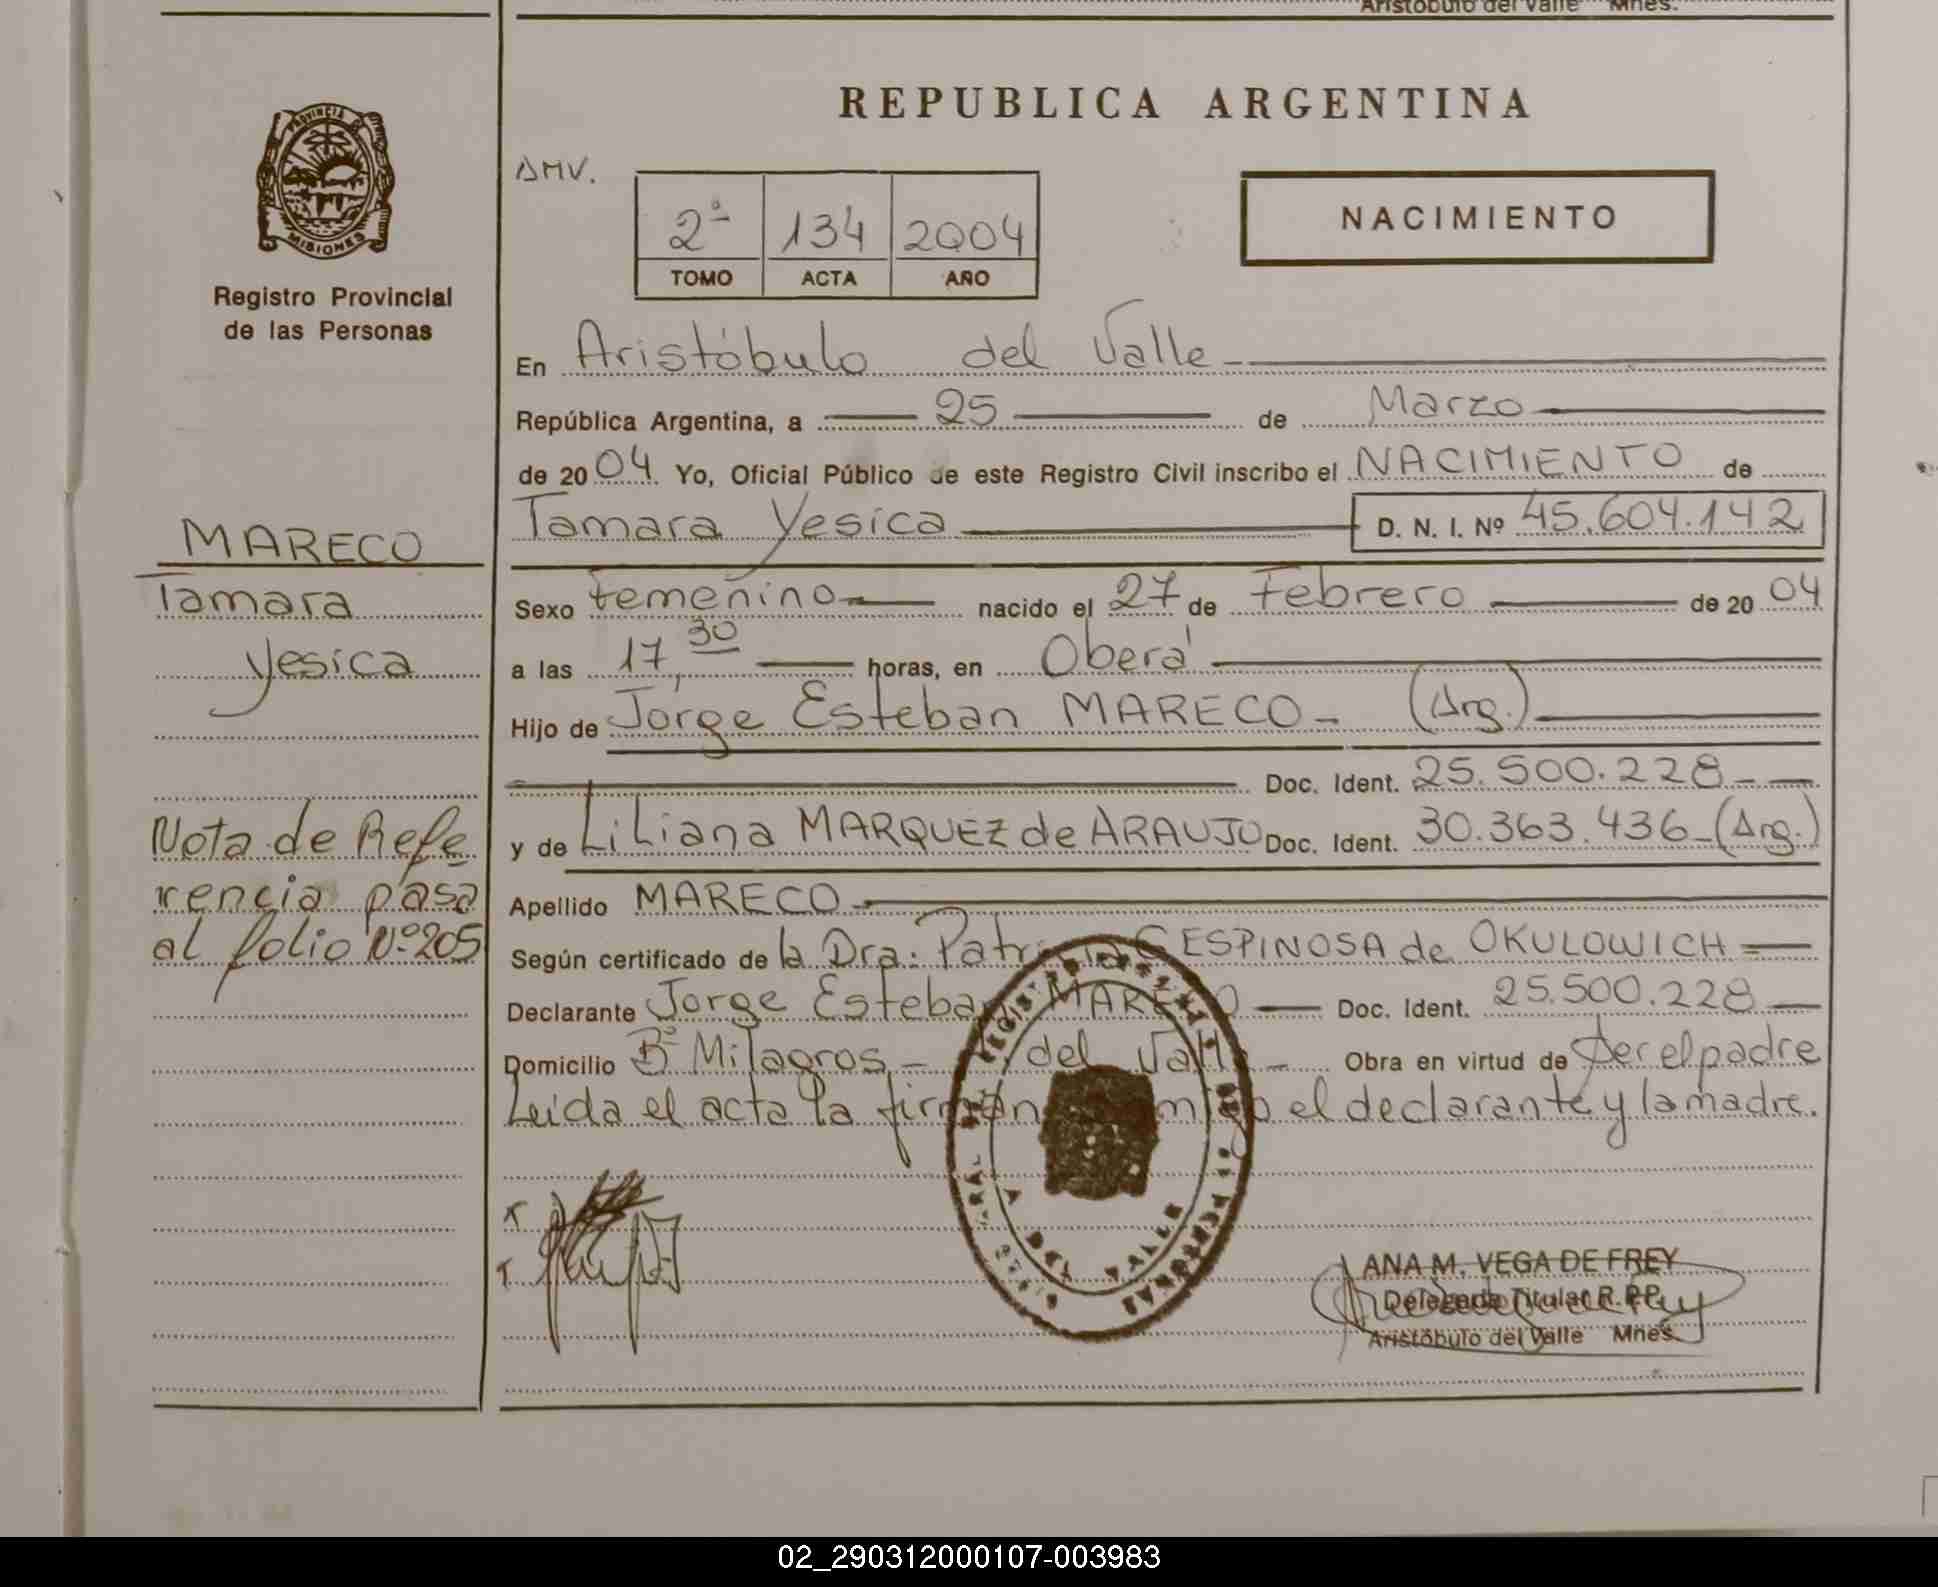 Aristóbulo del Valle Mnes.
REPUBLICA ARGENTINA
PROVINCIA DE
MISIONES
Registro Provincial
de las Personas
AMV.
2º 134 2004
TOMO ACTA AÑO
NACIMIENTO
En Aristóbulo del Valle
República Argentina, a 25 de Marzo
de 2004 Yo, Oficial Público de este Registro Civil inscribo el NACIMIENTO de
Tamara Yesica D. N. I. Nº 45.604.142
MARECO
Tamara
Yesica
Sexo femenino nacido el 27 de Febrero de 2004
a las 17,30 horas, en Oberá
Hijo de Jorge Esteban MARECO - (Arg.)
Doc. Ident. 25.500.228
y de Liliana MARQUEZ de ARAUJO Doc. Ident. 30.363.436 (Arg.)
Nota de Refe
rencia pasa
al folio Nº 205
Apellido MARECO
Según certificado de la Dra: Patricia ESPINOSA de OKULOWICH
Declarante Jorge Esteban MARECO Doc. Ident. 25.500.228
Domicilio Bº Milagros - del Valle - Obra en virtud de ser el padre
Leída el acta la firman el declarante y la madre.
ANA M. VEGA DE FREY
Delegada Titular R.P.P.
Aristóbulo del Valle Mnes.
02_290312000107-003983